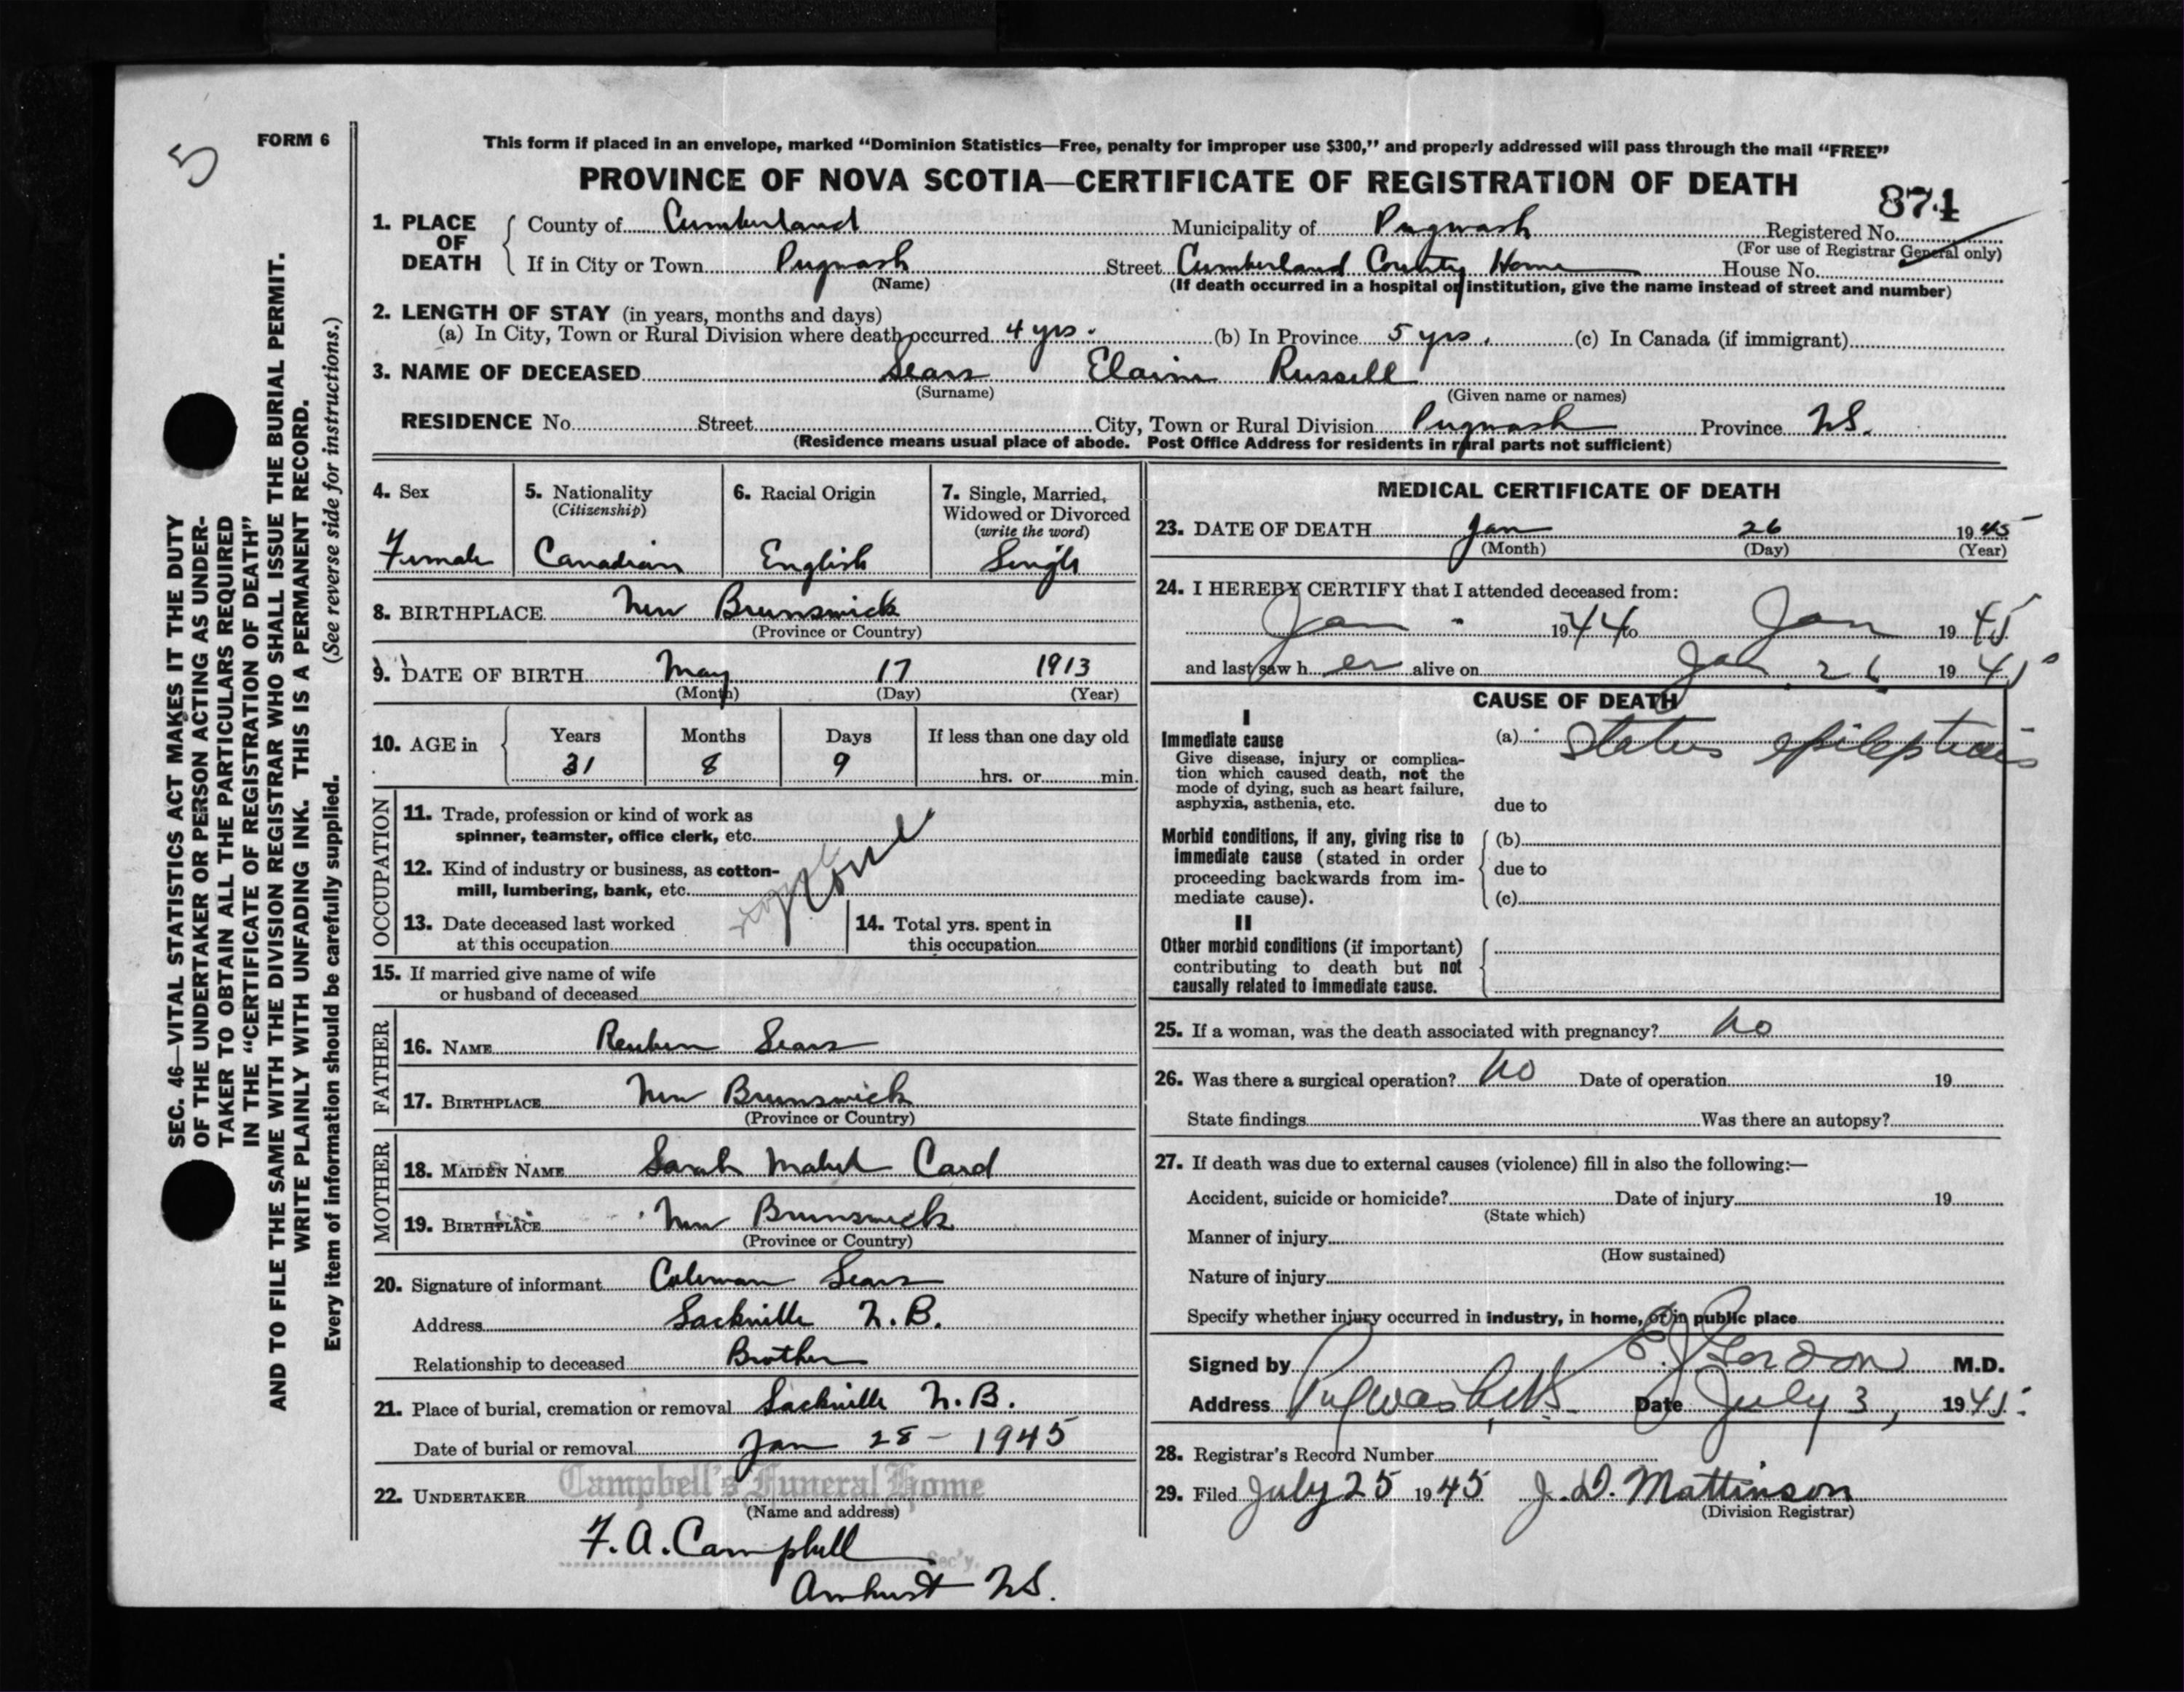 5
FORM 6
SEC. 46—VITAL STATISTICS ACT MAKES IT THE DUTY
OF THE UNDERTAKER OR PERSON ACTING AS UNDER-
TAKER TO OBTAIN ALL THE PARTICULARS REQUIRED
IN THE "CERTIFICATE OF REGISTRATION OF DEATH"
AND TO FILE THE SAME WITH THE DIVISION REGISTRAR WHO SHALL ISSUE THE BURIAL PERMIT.
WRITE PLAINLY WITH UNFADING INK. THIS IS A PERMANENT RECORD.
Every item of information should be carefully supplied. (See reverse side for instructions.)
This form if placed in an envelope, marked "Dominion Statistics—Free, penalty for improper use $300," and properly addressed will pass through the mail "FREE"
PROVINCE OF NOVA SCOTIA—CERTIFICATE OF REGISTRATION OF DEATH
871
1. PLACE OF DEATH County of Cumberland Municipality of Pugwash Registered No.
(For use of Registrar General only)
If in City or Town Pugwash Street Cumberland County Home House No.
(Name) (If death occurred in a hospital or institution, give the name instead of street and number)
2. LENGTH OF STAY (in years, months and days)
(a) In City, Town or Rural Division where death occurred 4 yrs. (b) In Province 5 yrs. (c) In Canada (if immigrant)
3. NAME OF DECEASED Sears Elaine Russell
(Surname) (Given name or names)
RESIDENCE No. Street City, Town or Rural Division Pugwash Province N.S.
(Residence means usual place of abode. Post Office Address for residents in rural parts not sufficient)
4. Sex 5. Nationality 6. Racial Origin 7. Single, Married,
(Citizenship) Widowed or Divorced
(write the word)
Female Canadian English Single
8. BIRTHPLACE New Brunswick
(Province or Country)
9. DATE OF BIRTH May 17 1913
(Month) (Day) (Year)
10. AGE in Years Months Days If less than one day old
31 8 9 hrs. or min.
OCCUPATION
11. Trade, profession or kind of work as
spinner, teamster, office clerk, etc.
12. Kind of industry or business, as cotton-
mill, lumbering, bank, etc.
None
13. Date deceased last worked 14. Total yrs. spent in
at this occupation this occupation
15. If married give name of wife
or husband of deceased
FATHER
16. NAME Reuben Sears
17. BIRTHPLACE New Brunswick
(Province or Country)
MOTHER
18. MAIDEN NAME Sarah Mabel Card
19. BIRTHPLACE New Brunswick
(Province or Country)
20. Signature of informant Coleman Sears
Address Sackville N.B.
Relationship to deceased Brother
21. Place of burial, cremation or removal Sackville N.B.
Date of burial or removal Jan 28 - 1945
22. UNDERTAKER Campbell's Funeral Home
(Name and address)
F. A. Campbell Sec'y.
Amherst NS.
MEDICAL CERTIFICATE OF DEATH
23. DATE OF DEATH Jan 26 1945
(Month) (Day) (Year)
24. I HEREBY CERTIFY that I attended deceased from:
Jan - 1944 to Jan 1945
and last saw her alive on Jan 26 1945
CAUSE OF DEATH
I
Immediate cause (a) Status epilepticus
Give disease, injury or complica-
tion which caused death, not the
mode of dying, such as heart failure,
asphyxia, asthenia, etc. due to
Morbid conditions, if any, giving rise to (b)
immediate cause (stated in order
proceeding backwards from im- due to
mediate cause). (c)
II
Other morbid conditions (if important)
contributing to death but not
causally related to immediate cause.
25. If a woman, was the death associated with pregnancy? No
26. Was there a surgical operation? No Date of operation 19
State findings Was there an autopsy?
27. If death was due to external causes (violence) fill in also the following:—
Accident, suicide or homicide? Date of injury 19
(State which)
Manner of injury
(How sustained)
Nature of injury
Specify whether injury occurred in industry, in home, or in public place
Signed by Gordon M.D.
Address Pugwash, N.S. Date July 3, 1945
28. Registrar's Record Number
29. Filed July 25 1945 J. D. Mattinson
(Division Registrar)